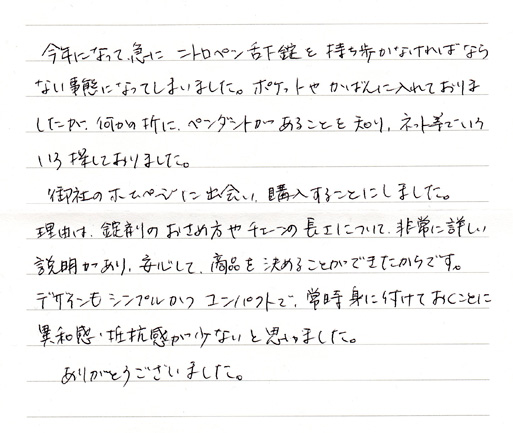 今年になって、急に ニトロペン舌下錠を持ち歩かなければなら
ない事態になってしまいました。ポケットやかばんに入れておりま
したが、何かの折に、ペンダントがあることを知り、ネット等でいろ
いろ探しておりました。
御社のホームページに出会い、購入することにしました。
理由は、錠剤のおさめ方やチェーンの長さについて、非常に詳しい
説明があり、安心して、商品を決めることができたからです。
デザインもシンプルかつコンパクトで、常時身に付けておくことに
異和感・抵抗感が少ないと思いました。
ありがとうございました。